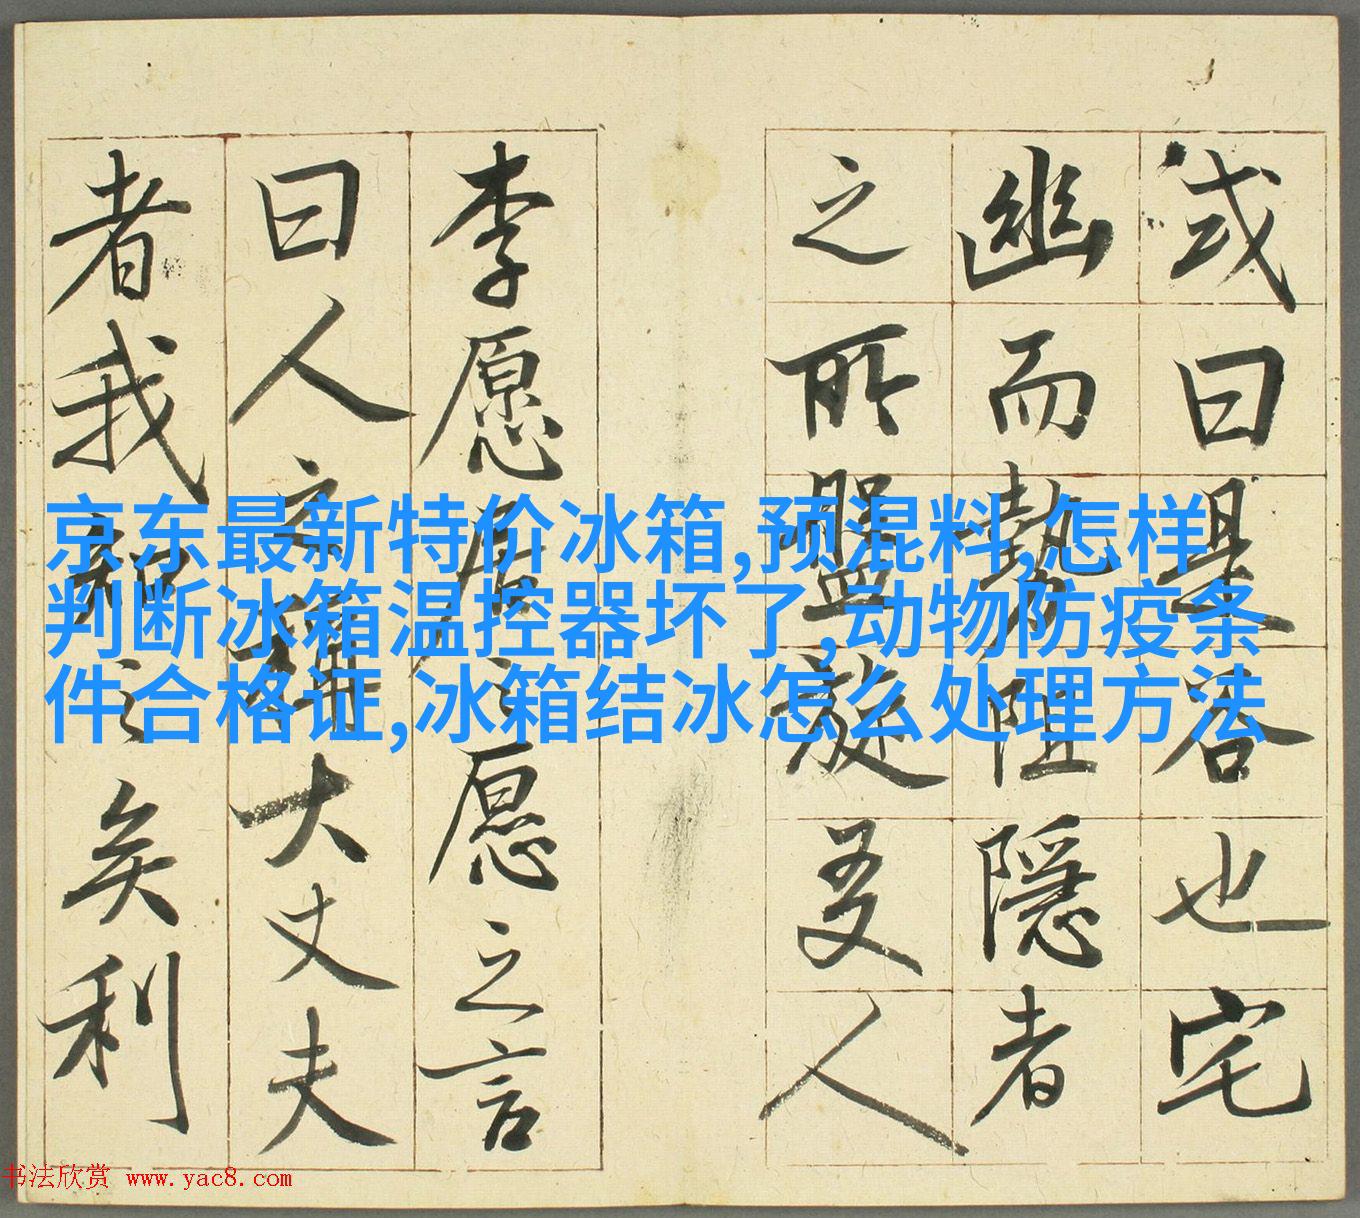 或曰是谷也宅
幽而勢阻隱者
之所盤旋友人
李愿居之愿之言
曰人之稱大丈夫
者我知之矣利
京东最新特价冰箱,预混料,怎样
判断冰箱温控器坏了,动物防疫条
件合格证,冰箱结冰怎么处理方法
书法欣赏 www.yac8.com